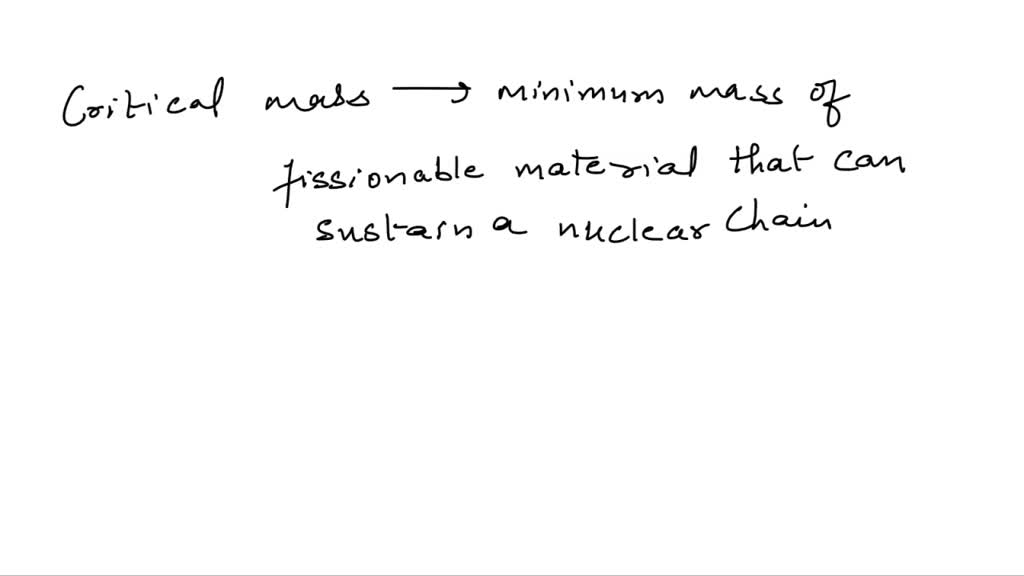 Critical mass → minimum mass of
fissionable material that can
sustain a nuclear chain